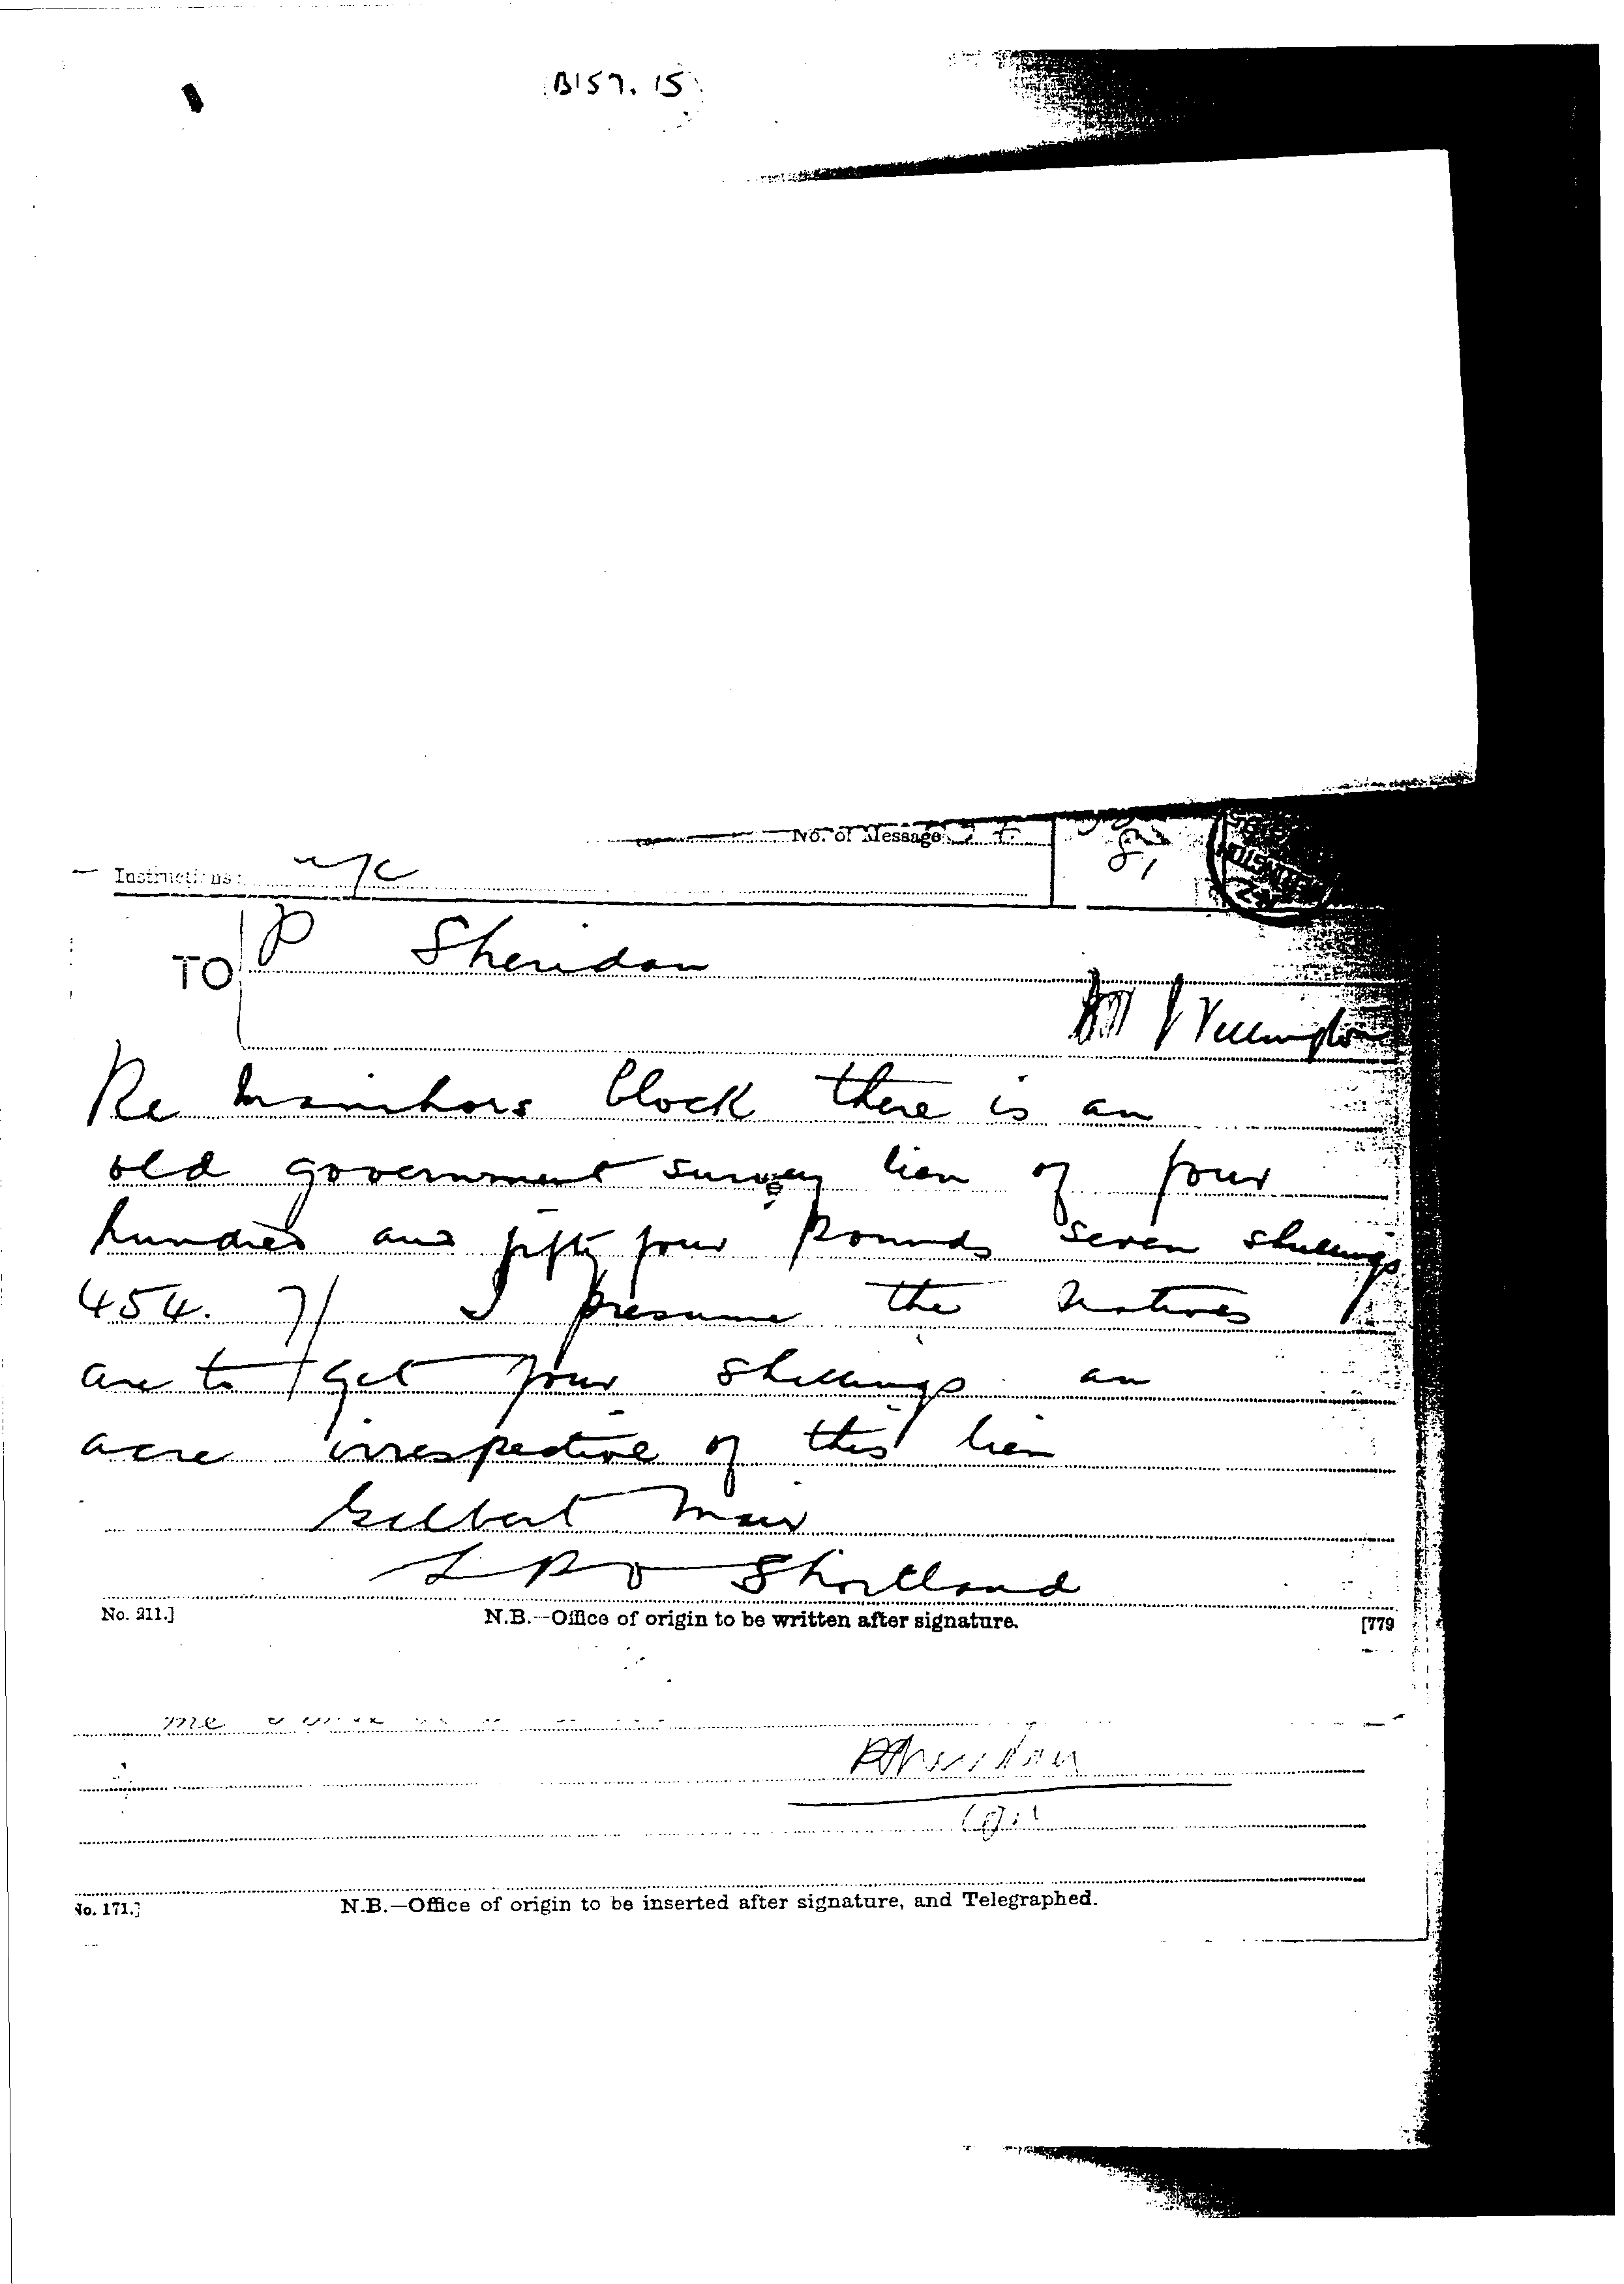 B157. 15
No. of Message
Instructions:
TO P Sheridan
Wellington
Re block there is an
old government survey lien of four
hundred and fifty four pounds seven shillings
454. 7/ I presume the Natives
are to get four shillings an
acre irrespective of this lien
Gilbert Mair
L P O Shortland
No. 211.] N.B.--Office of origin to be written after signature. [779
me
PSheridan
No. 171.] N.B.—Office of origin to be inserted after signature, and Telegraphed.